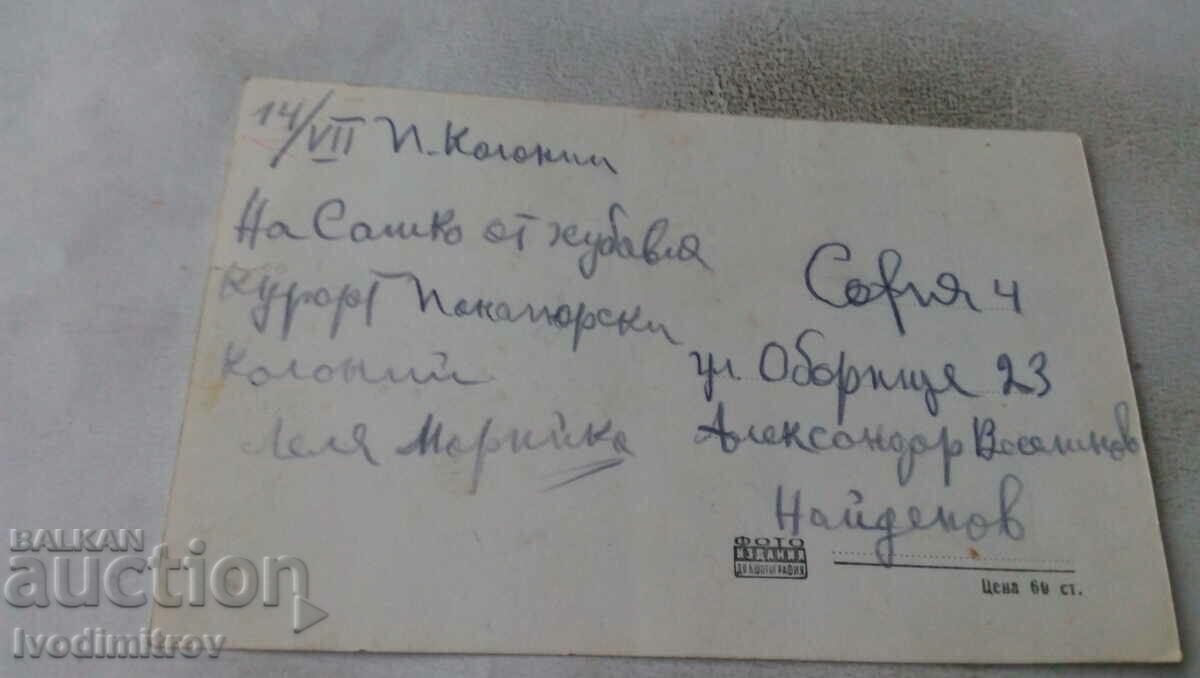 14/VII П. Колонии
На Сашко от хубавия
курорт Панагюрски
Колонии
Леля Марийка
София 4
ул. Оборище 23
Александър Веселинов
Найденов
ФОТО
ИЗДАНИЯ
ДП БЪЛГ. ФОТОГРАФИЯ
Цена 60 ст.
BALKAN
auction
Ivodimitrov